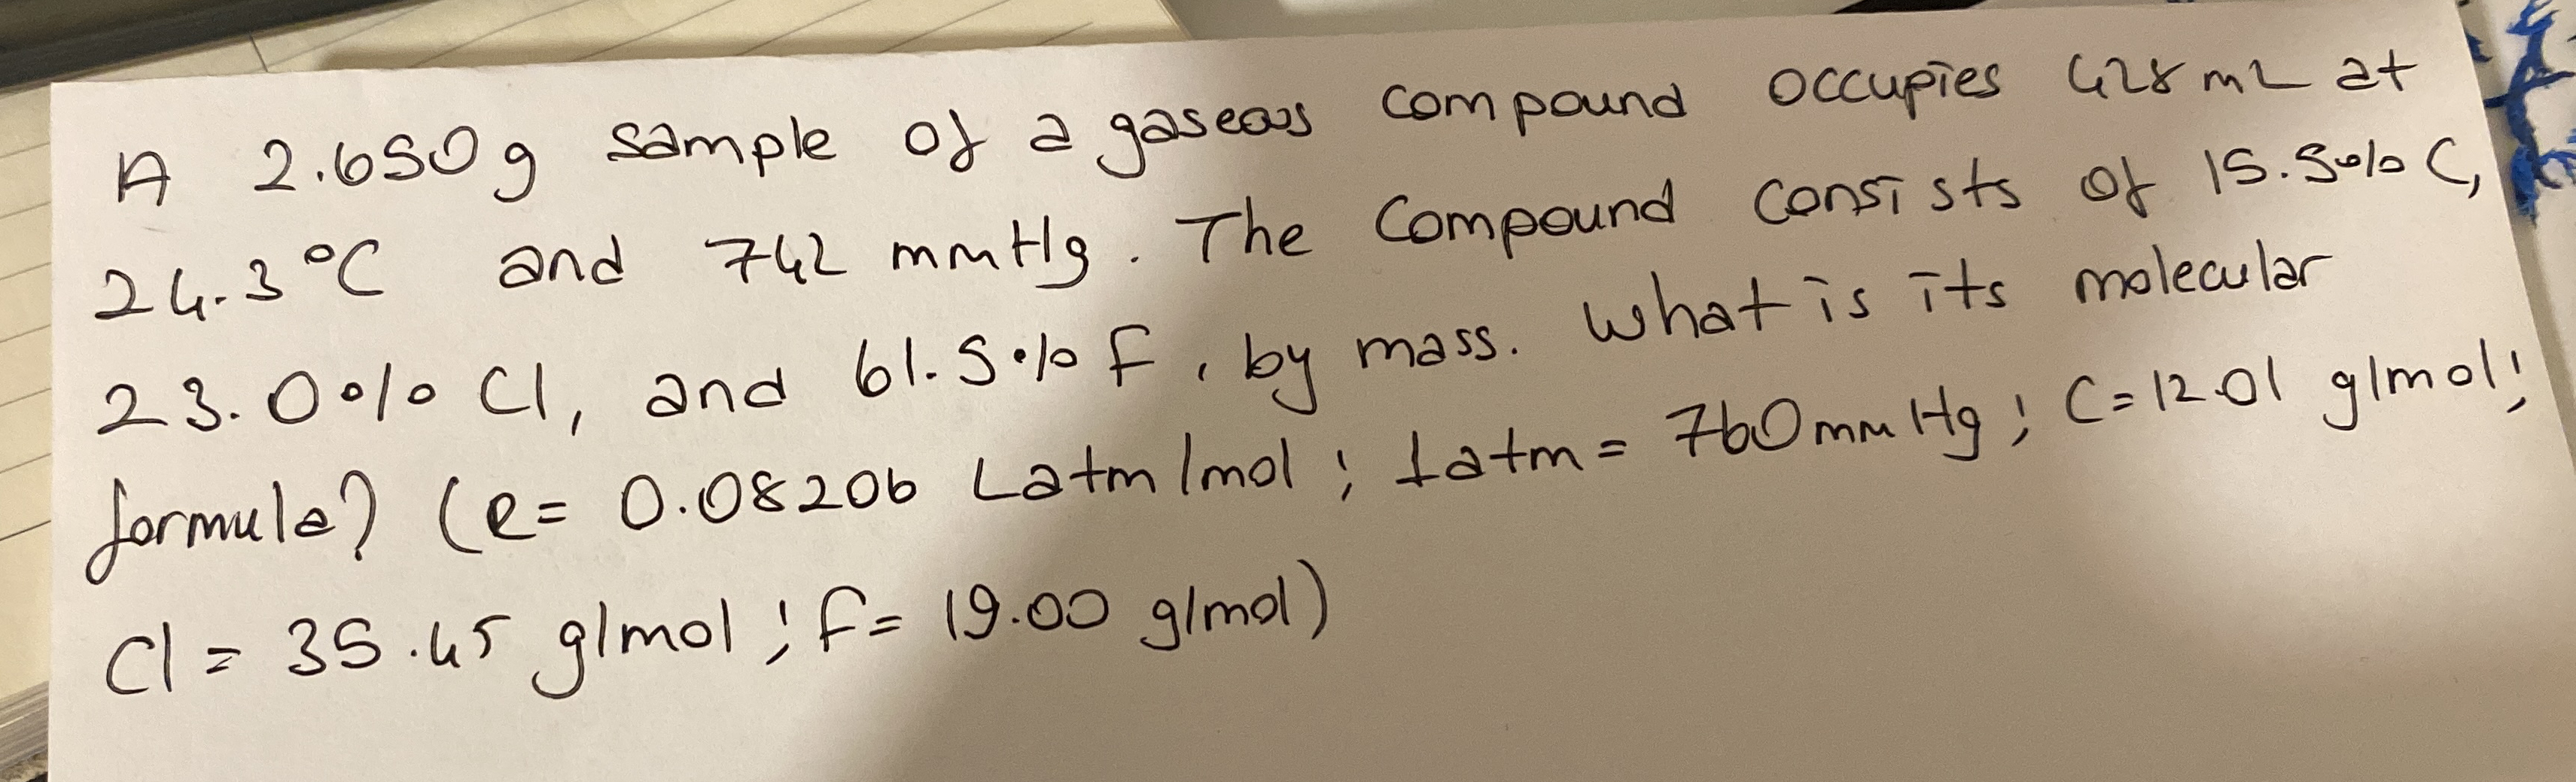 A 2.650g sample of a gaseous compound occupies 428 mL at
24.3 °C and 742 mmHg. The Compound consists of 15.5% C,
23.0% Cl, and 61.5% F, by mass. What is its molecular
formula? (R= 0.08206 Latm/mol; 1atm= 760mmHg; C=12.01 g/mol;
Cl = 35.45 g/mol; F= 19.00 g/mol)